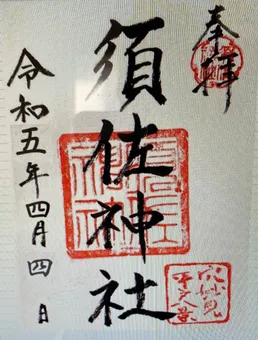 奉拝
須佐神社
令和五年四月四日